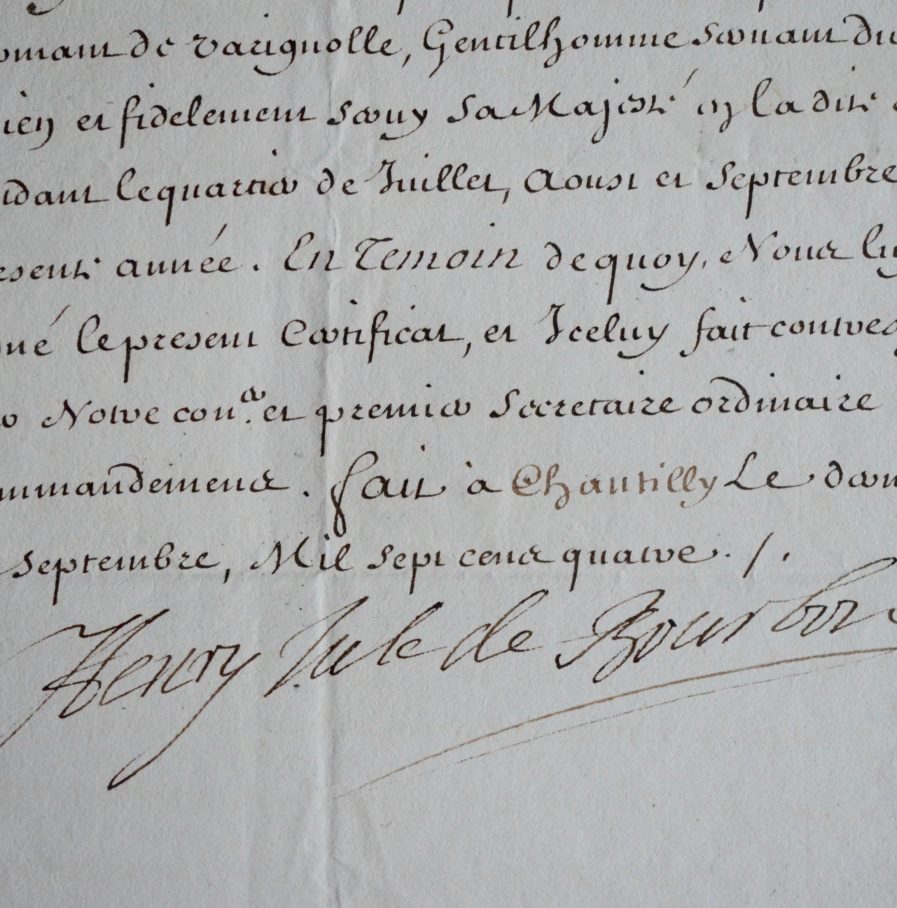 omant de Varignolle, Gentilhomme servant du
ien et fidelement servy Sa Majesté en la dite
ndant le quartier de Juillet, Aoust et Septembre
esente année. En Temoin de quoy, Nous lu
né le present Certificat, et Iceluy fait contres
r Notre con.er et premier Secretaire ordinaire
mmandemens. Fait à Chantilly Le dern
Septembre, Mil sept cens quatre. /.
Henry Jule de Bourbon